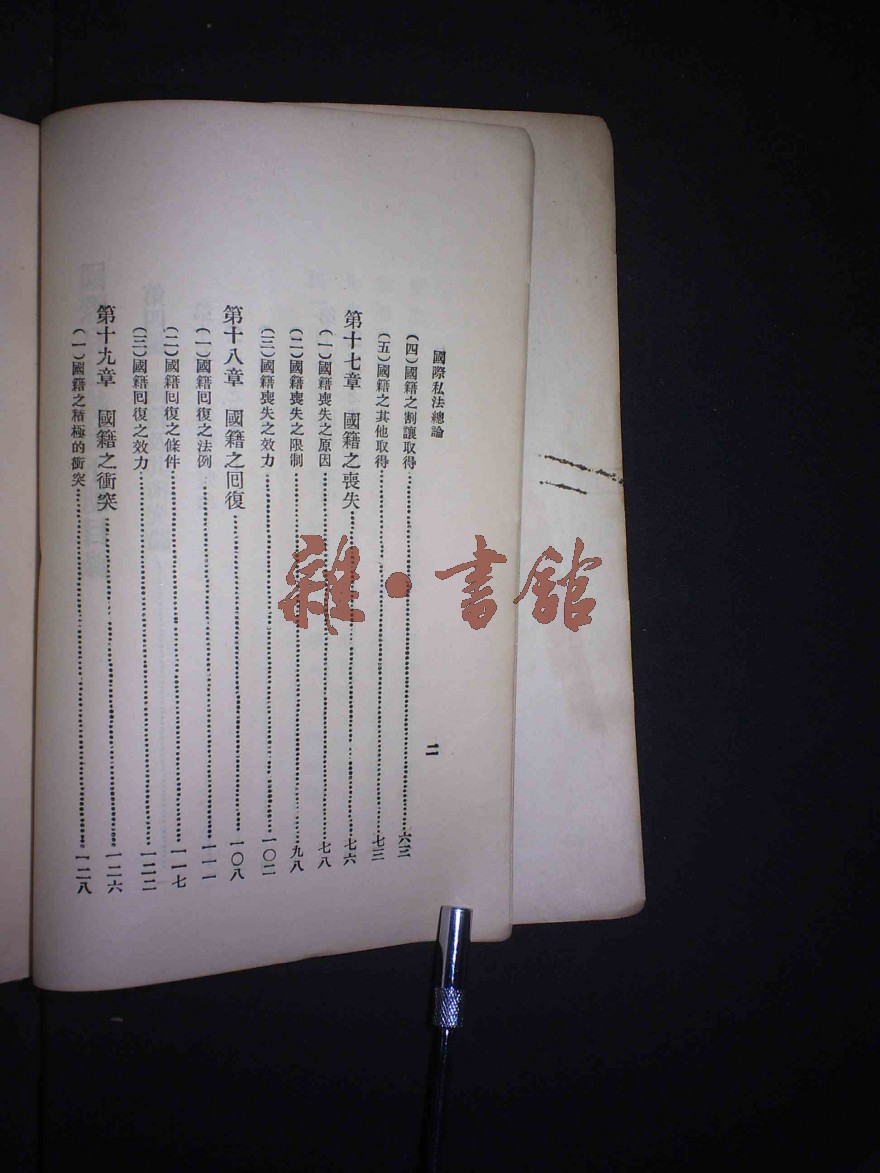 國際私法總論
二
(四)國籍之割讓取得……六三
(五)國籍之其他取得……七三
第十七章 國籍之喪失……七六
(一)國籍喪失之原因……七八
(二)國籍喪失之限制……九八
(三)國籍喪失之效力……一〇二
第十八章 國籍之囘復……一〇八
(一)國籍囘復之法例……一一一
(二)國籍囘復之條件……一一七
(三)國籍囘復之效力……一二二
第十九章 國籍之衝突……一二六
(一)國籍之積極的衝突……一二八
雜·書館